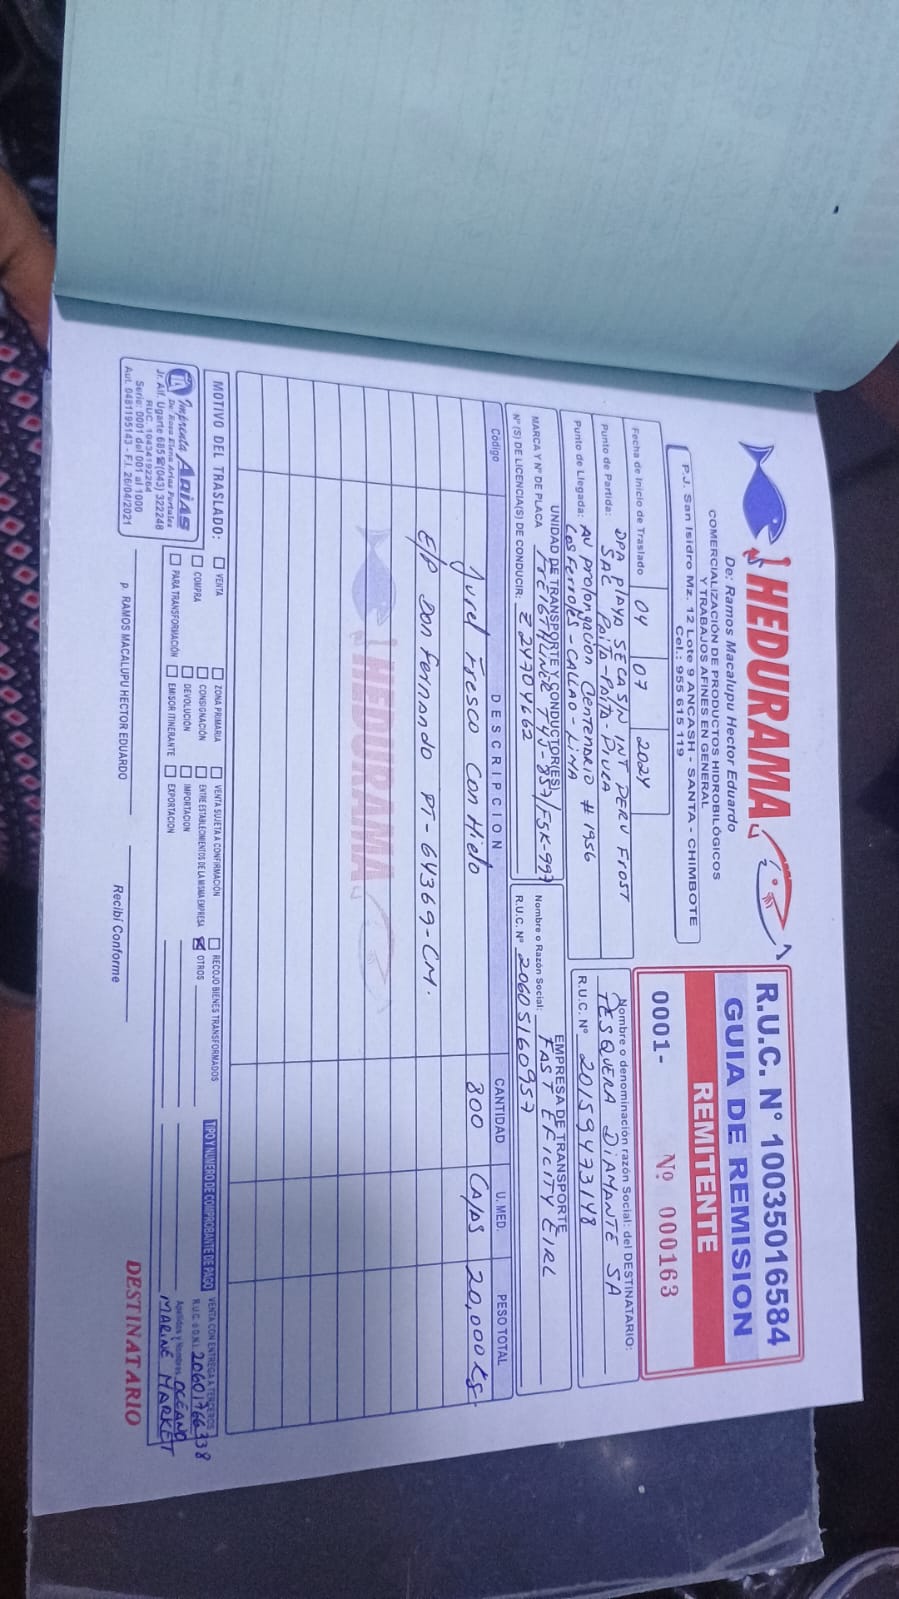 HEDURAMA
De: Ramos Macalupu Hector Eduardo
COMERCIALIZACIÓN DE PRODUCTOS HIDROBILÓGICOS
Y TRABAJOS AFINES EN GENERAL
P.J. San Isidro Mz. 12 Lote 9 ANCASH - SANTA - CHIMBOTE
Cel.: 955 615 119
R.U.C. N° 10035016584
GUIA DE REMISION
REMITENTE
0001- Nº 000163
Fecha de Inicio de Traslado 04 07 2024
Punto de Partida: DPA Playa SECA S/N INT PERU Frost
SAC Paita-Paita-Piura
Punto de Llegada: AV Prolongación Centenario # 1956
Los Ferroles - CALLAO - LIMA
Nombre o denominación razón Social: del DESTINATARIO:
PESQUERA DIAMANTE SA
R.U.C. N° 20159473148
UNIDAD DE TRANSPORTE Y CONDUCTOR(ES)
MARCA Y Nº DE PLACA FREIGTHLINER T4J-857/F5K-997
N° (S) DE LICENCIA(S) DE CONDUCIR: Z24704662
EMPRESA DE TRANSPORTE
Nombre o Razón Social: FAST EFICITY EIRL
R.U.C. N° 20605160957
Código DESCRIPCION CANTIDAD U. MED. PESO TOTAL
Jurel Fresco Con Hielo 800 Cajas 20,000 KS.
E/P Don Fernando PT-64369-CM.
HEDURAMA
MOTIVO DEL TRASLADO:
VENTA
COMPRA
PARA TRANSFORMACIÓN
ZONA PRIMARIA
CONSIGNACIÓN
DEVOLUCIÓN
EMISOR ITINERANTE
VENTA SUJETA A CONFIRMACIÓN
ENTRE ESTABLECIMIENTOS DE LA MISMA EMPRESA
IMPORTACION
EXPORTACION
RECOJO BIENES TRANSFORMADOS
OTROS
TIPO Y NUMERO DE COMPROBANTE DE PAGO
VENTA CON ENTREGA A TERCEROS
R.U.C. ó D.N.I. 20601766338
Apellidos y Nombres OCEANO
MARINE MARKET
Imprenta ARIAS
De: Rosa Elena Arias Portales
Jr. Alf. Ugarte 685 (043) 322248
RUC. 10434192264
Serie: 0001 del 001 al 1000
Aut. 0481195143 - F.I. 26/04/2021
p. RAMOS MACALUPU HECTOR EDUARDO
Recibí Conforme
DESTINATARIO